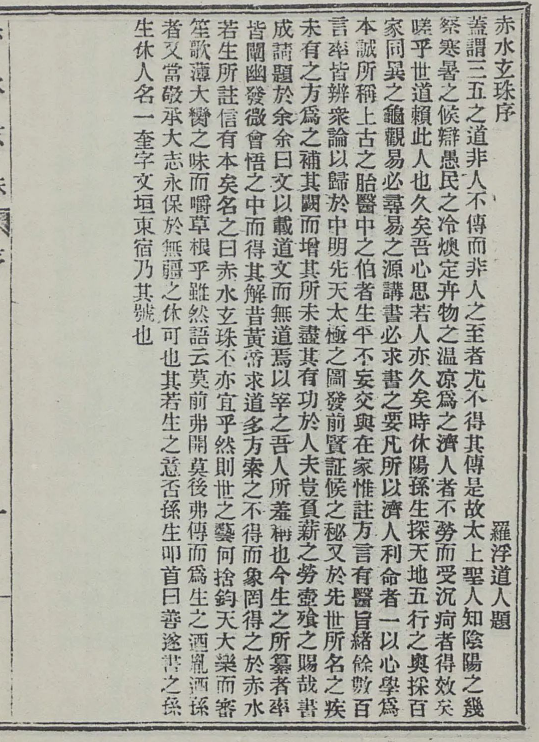 赤水玄珠序
羅浮道人題
蓋謂三五之道非人不傳而非人之至者尤不得其傳是故太上聖人知陰陽之幾
察寒暑之候辯愚民之冷燠定卉物之温凉爲之濟人者不勞而受沉疴者得效矣
嗟乎世道賴此人也久矣吾心思若人亦久矣時休陽孫生探天地五行之奥採百
家同異之龜觀易必尋易之源講書必求書之要凡所以濟人利命者一以心學爲
本誠所稱上古之胎醫中之伯者生平不妄交與在家惟註方言有醫旨緒餘數百
言率皆辨衆論以歸於中明先天太極之圖發前賢証候之秘又於先世所名之疾
未有之方爲之補其闕而增其所未盡其有功於人夫豈負薪之勞壺飱之賜哉書
成請題於余余曰文以載道文而無道焉以宰之吾人所羞稱也今生之所纂者率
皆闡幽發微會悟之中而得其解昔黄帝求道多方索之不得而象罔得之於赤水
若生所註信有本矣名之曰赤水玄珠不亦宜乎然則世之藝何捨鈞天大樂而審
笙歌薄大臠之味而嚼草根乎雖然語云莫前弗開莫後弗傳而爲生之酒胤酒孫
者又當敬承大志永保於無疆之休可也其若生之意否孫生叩首曰善遂書之孫
生休人名一奎字文垣東宿乃其號也